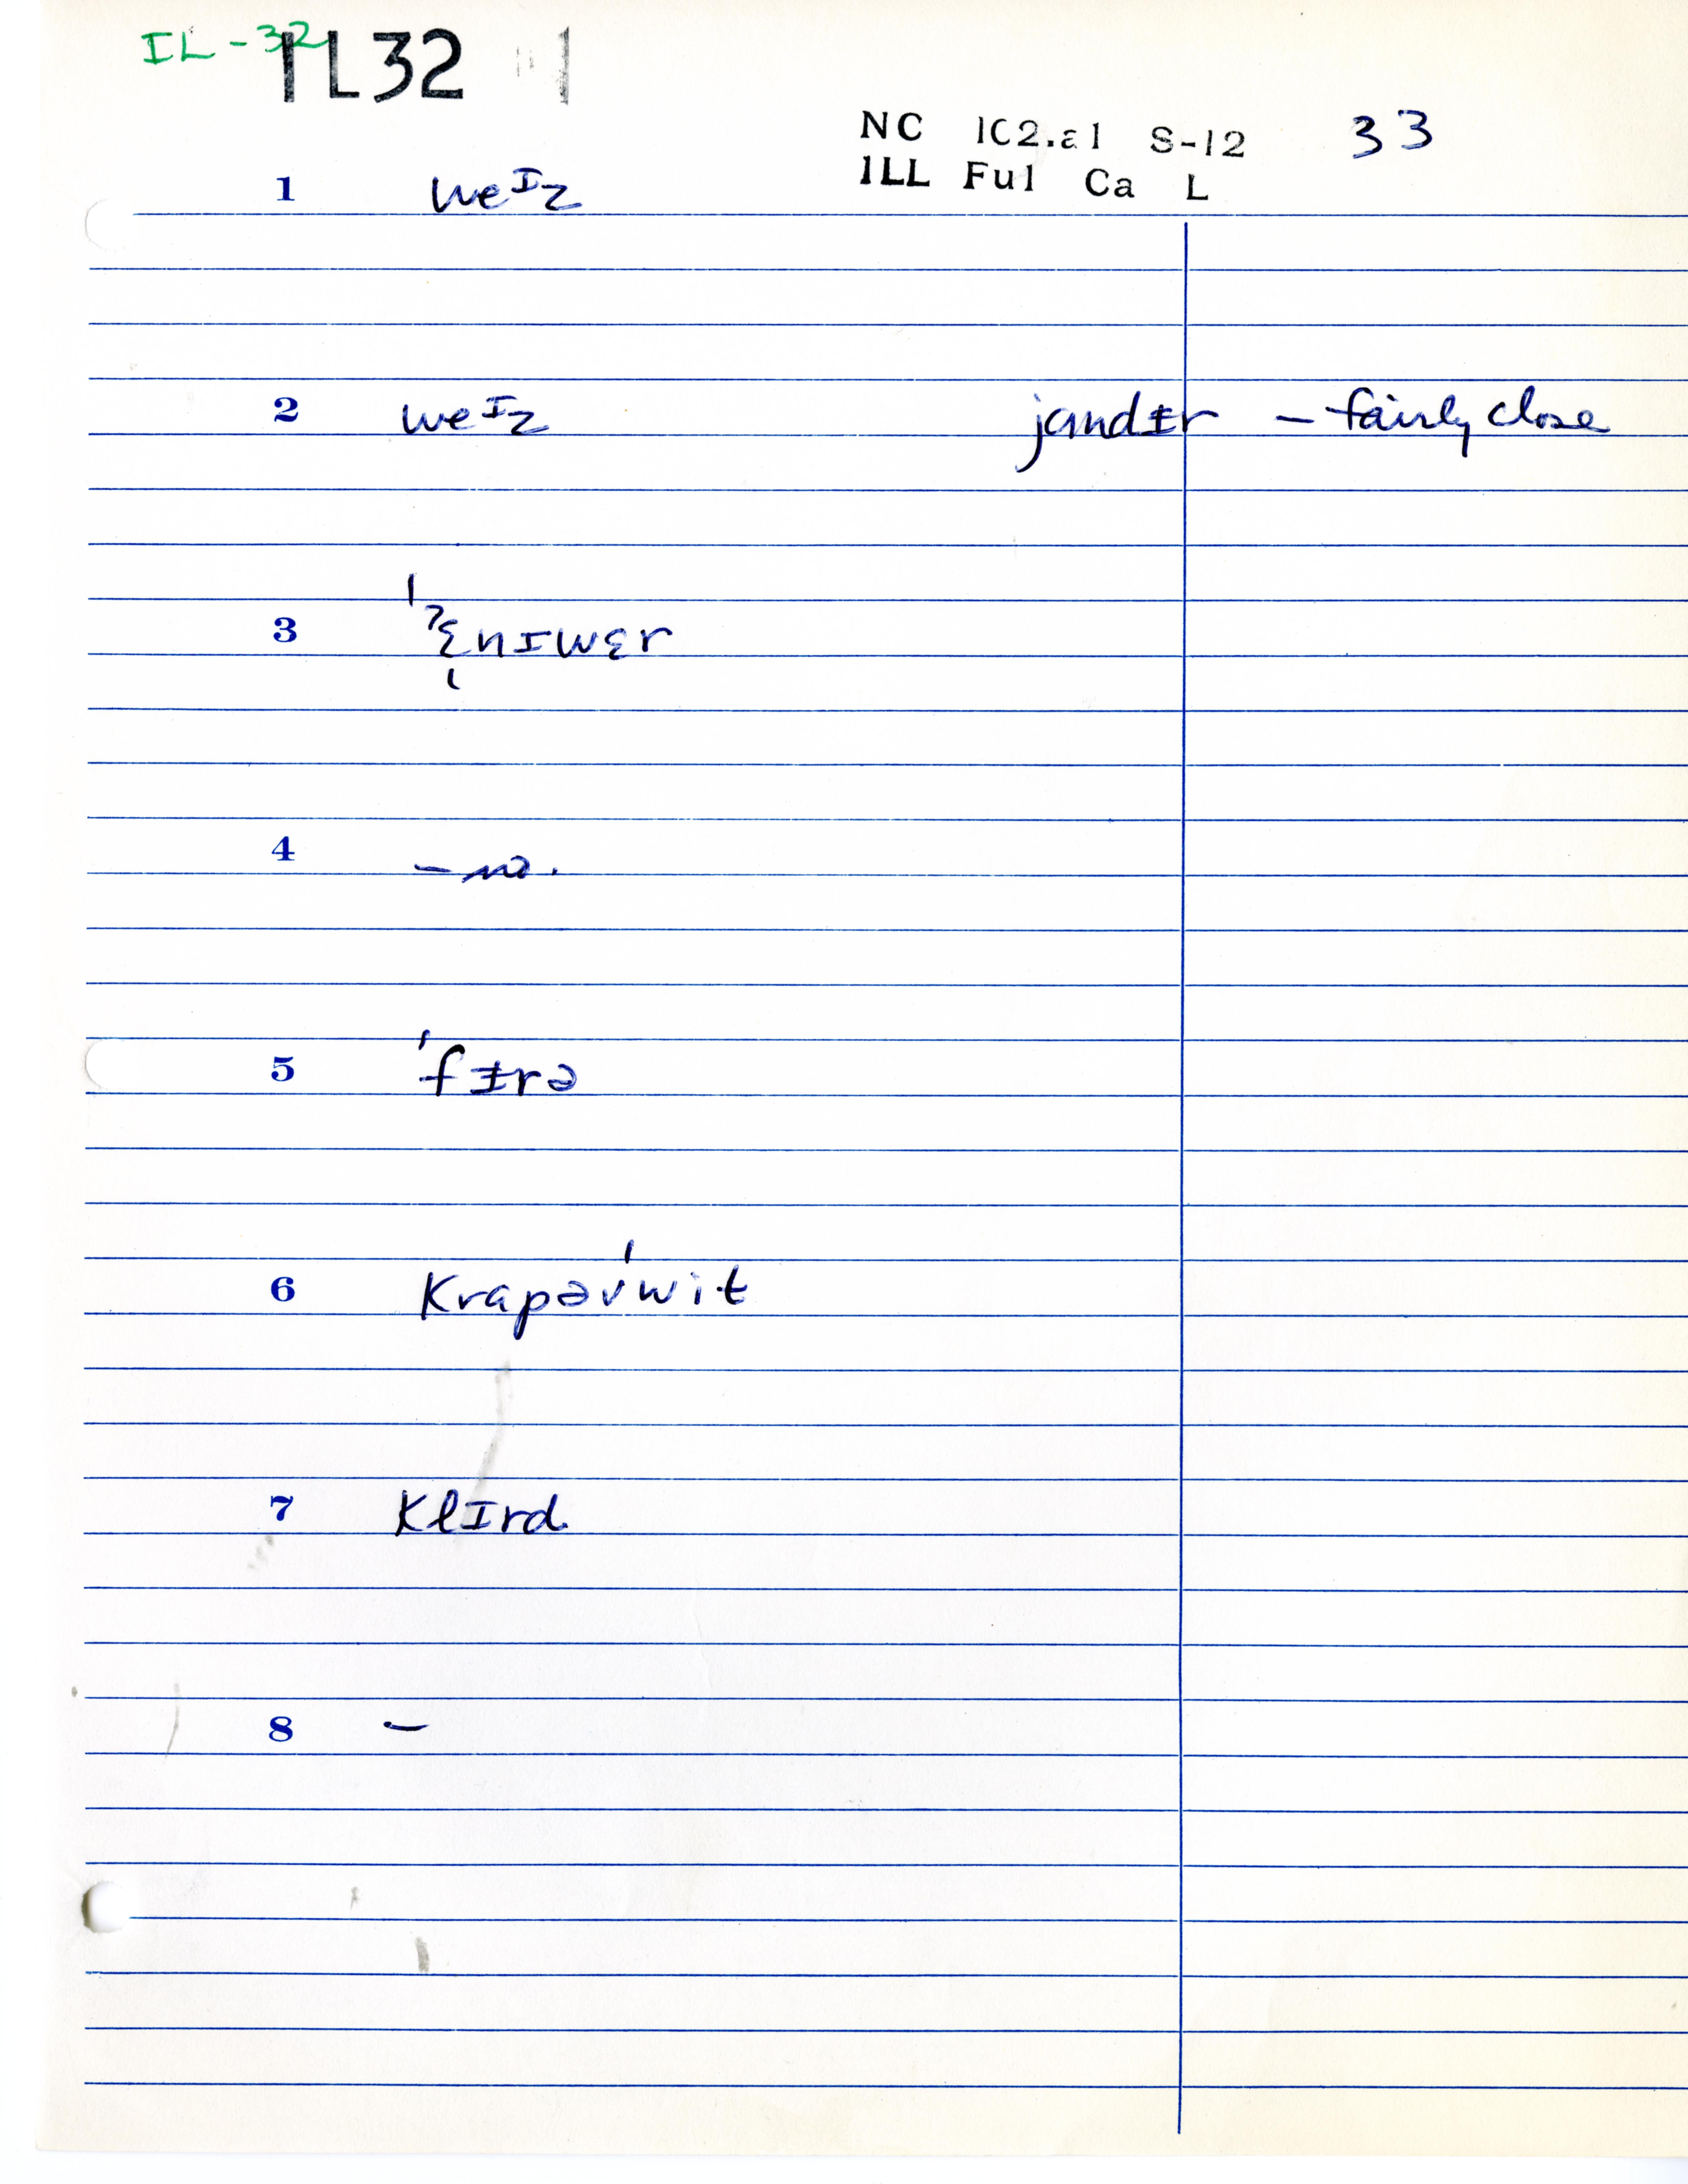 IL-32
IL32 1
NC 1C2.a1 S-12 33
ILL Ful Ca L
1 weᴵz
2 weᴵz jɑndɪ̵r – fairly close
3 ˈˀɛnɪwɛr
4 – no.
5 ˈfɪ̵rə
6 Krapəvˈwit
7 KlIrd
8 –